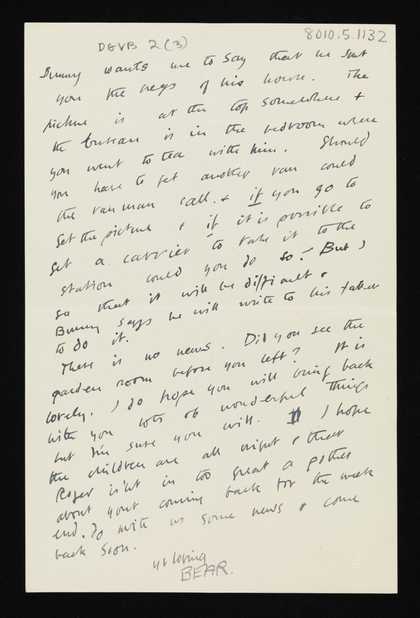 DGVB 2 (3)
8010.5.1132
Bunny wants me to say that he sent
you the keys of his house. The
picture is at the top somewhere &
the bureau is in the bedroom where
you went to tea with him. Should
you have to get another van could
the van man call & if you go to
get the picture & if it is possible to
get a carrier to take it to the
station could you do so? But I
so that it will be difficult &
Bunny says he will write to his father
to do it.
There is no news. Did you see the
garden room before you left? It is
lovely. I do hope you will bring back
with you lots of wonderful things
but I'm sure you will. I hope
the children are all right & that
Roger isn't in too great a pother
about your coming back for the week
end. Do write us some news & come
back soon.
yr loving
BEAR.